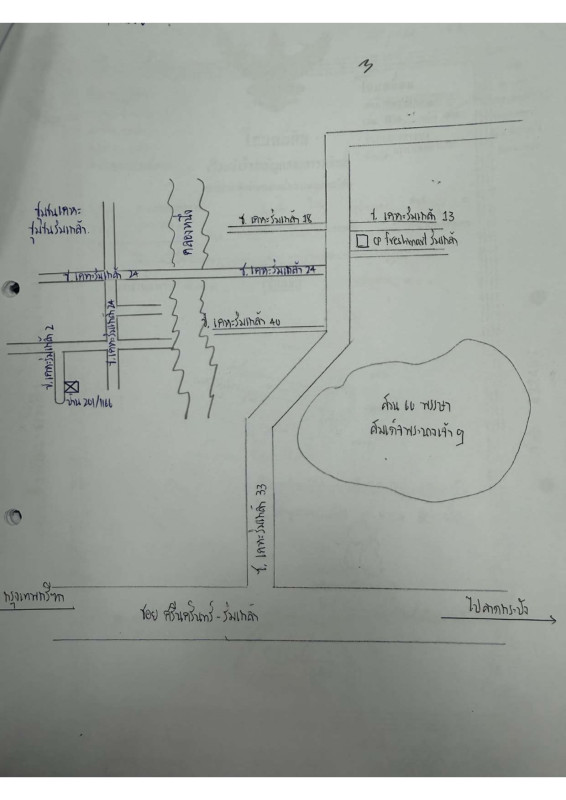 3
ชุมชนเคหะ
ชุมชนร่มเกล้า
คลองหนึ่ง
ซ. เคหะร่มเกล้า 18
ซ. เคหะร่มเกล้า 13
CP freshmart ร่มเกล้า
ซ. เคหะร่มเกล้า 24
ซ. เคหะร่มเกล้า 24
ซ. เคหะร่มเกล้า 24
ซ. เคหะร่มเกล้า 40
ซ. เคหะร่มเกล้า 2
บ้าน 201/1166
สวน 60 พรรษา
สมเด็จพระนางเจ้าฯ
ซ. เคหะร่มเกล้า 33
กรุงเทพกรีฑา
ซอย ศรีนครินทร์ - ร่มเกล้า
ไปลาดกระบัง